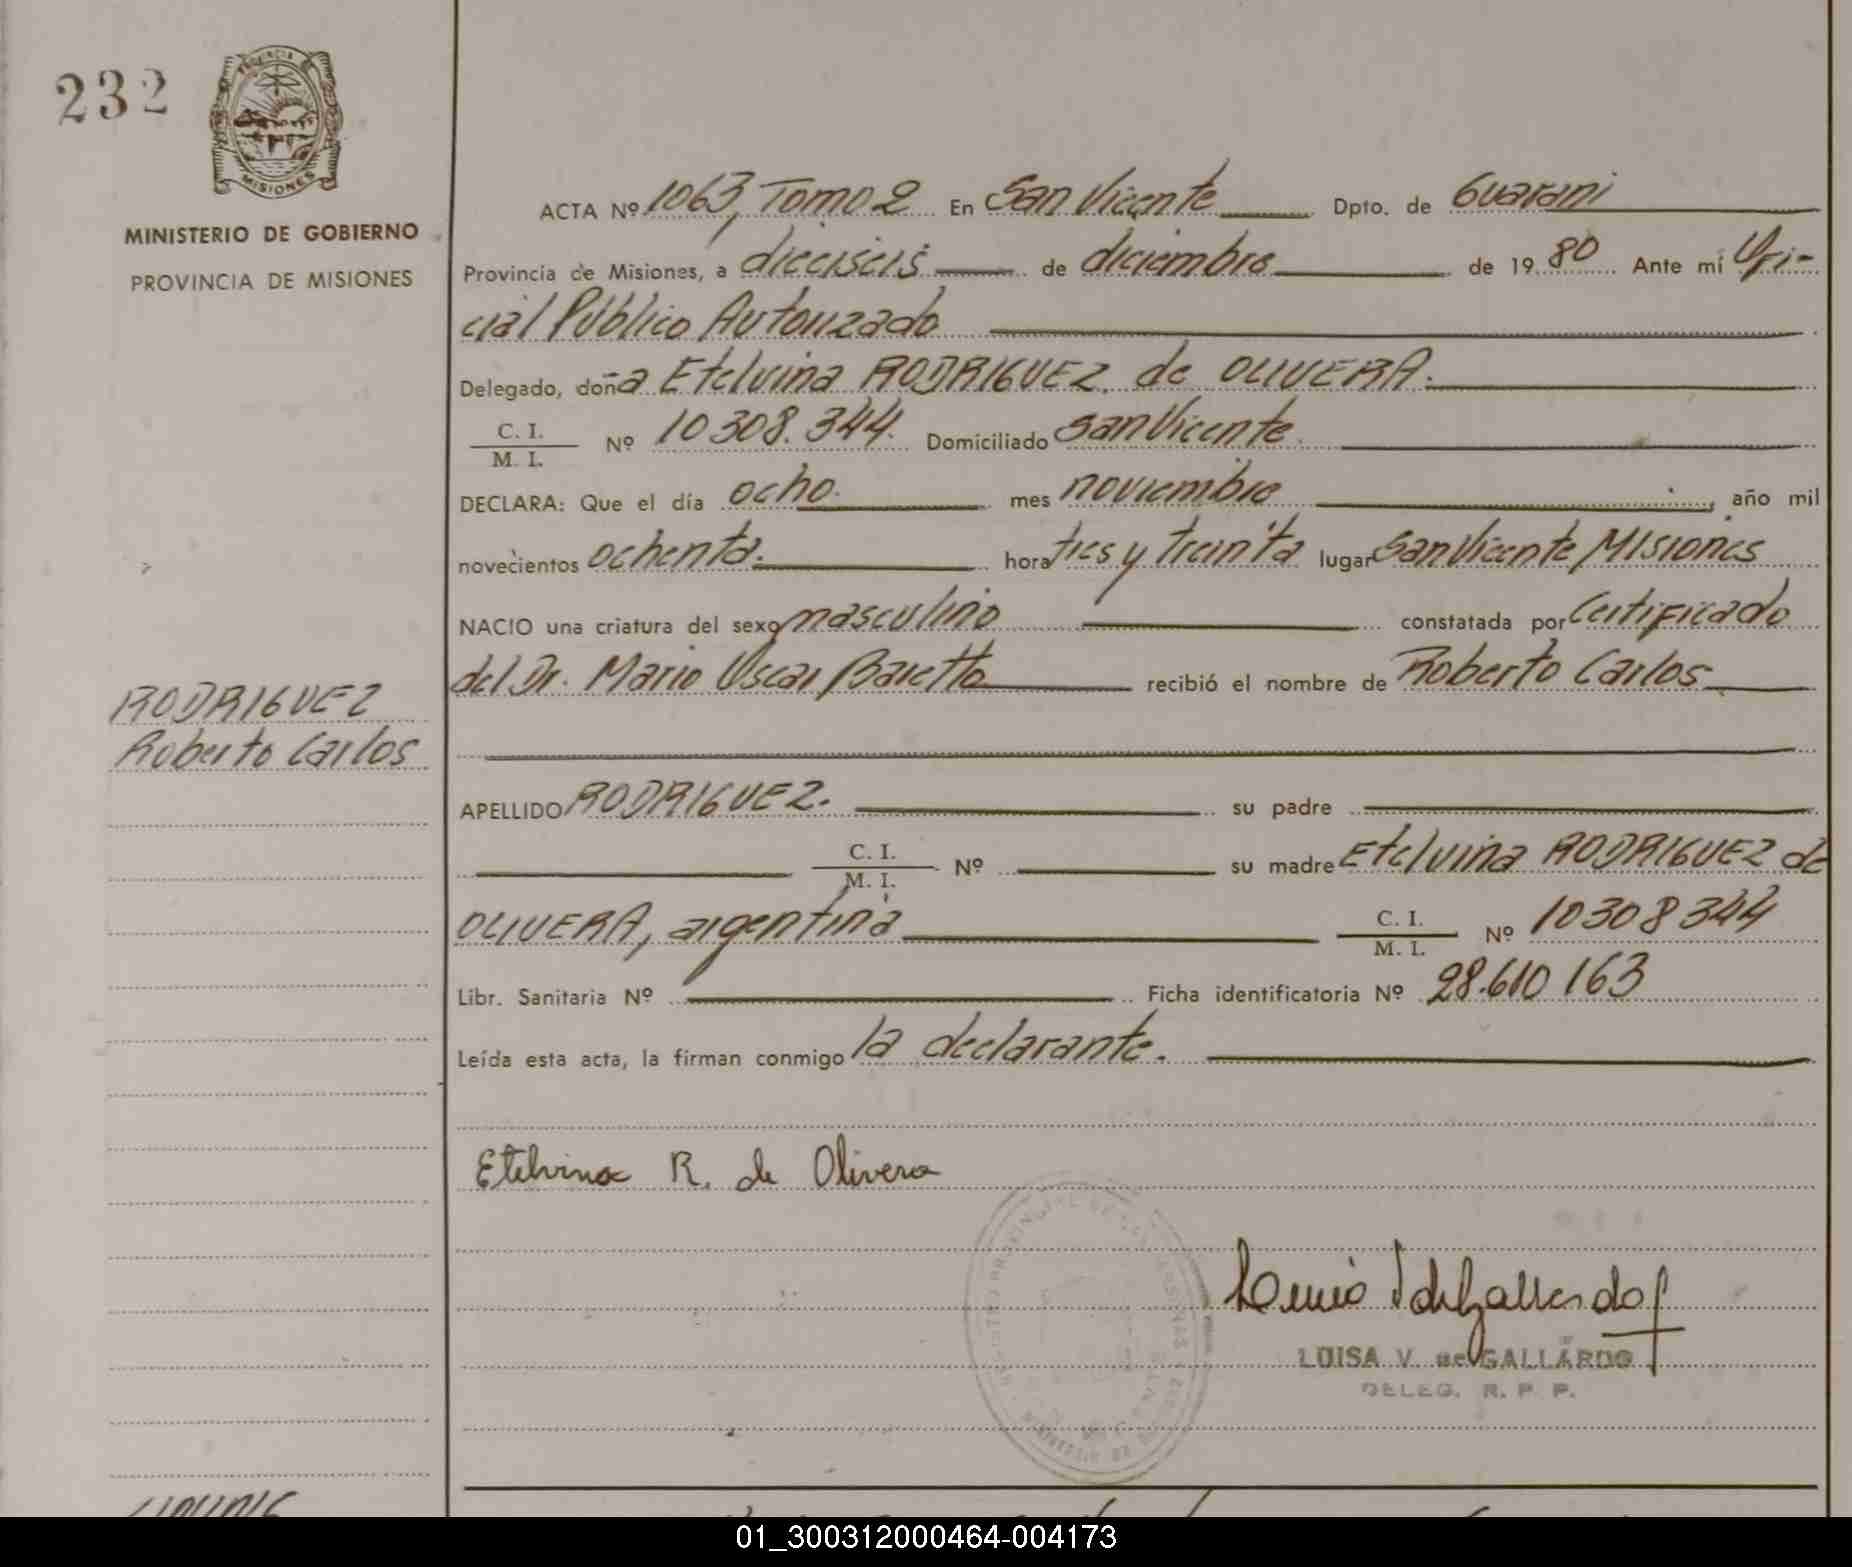 232
PROVINCIA DE
MISIONES
MINISTERIO DE GOBIERNO
PROVINCIA DE MISIONES
RODRIGUEZ
Roberto Carlos
ACTA Nº 1063, Tomo 2 En San Vicente Dpto. de Guarani
Provincia de Misiones, a dieciseis de diciembre de 19 80 Ante mí Ofi-
cial Público Autorizado
Delegado, doña Etelvina RODRIGUEZ de OLIVERA.
C. I.
M. I. Nº 10308.344. Domiciliado San Vicente.
DECLARA: Que el día ocho. mes noviembre, año mil
novecientos ochenta. hora tres y treinta lugar San Vicente Misiones
NACIO una criatura del sexo masculino constatada por Certificado
del Dr. Mario Oscar Baretto recibió el nombre de Roberto Carlos
APELLIDO RODRIGUEZ. su padre
C. I.
M. I. Nº su madre Etelvina RODRIGUEZ de
OLIVERA, argentina C. I.
M. I. Nº 10308344
Libr. Sanitaria Nº Ficha identificatoria Nº 28.610 163
Leída esta acta, la firman conmigo la declarante.
Etelvina R. de Olivera
LUISA V. de GALLARDO
DELEG. R. P. P.
01_300312000464-004173